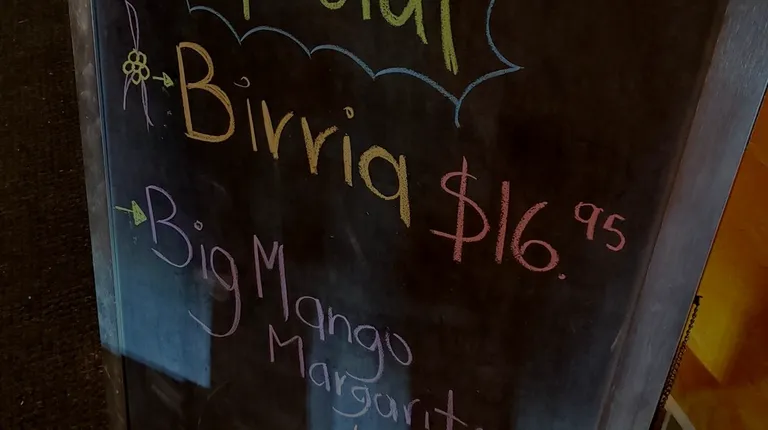 Birria $16.95
Big Mango
Margarit